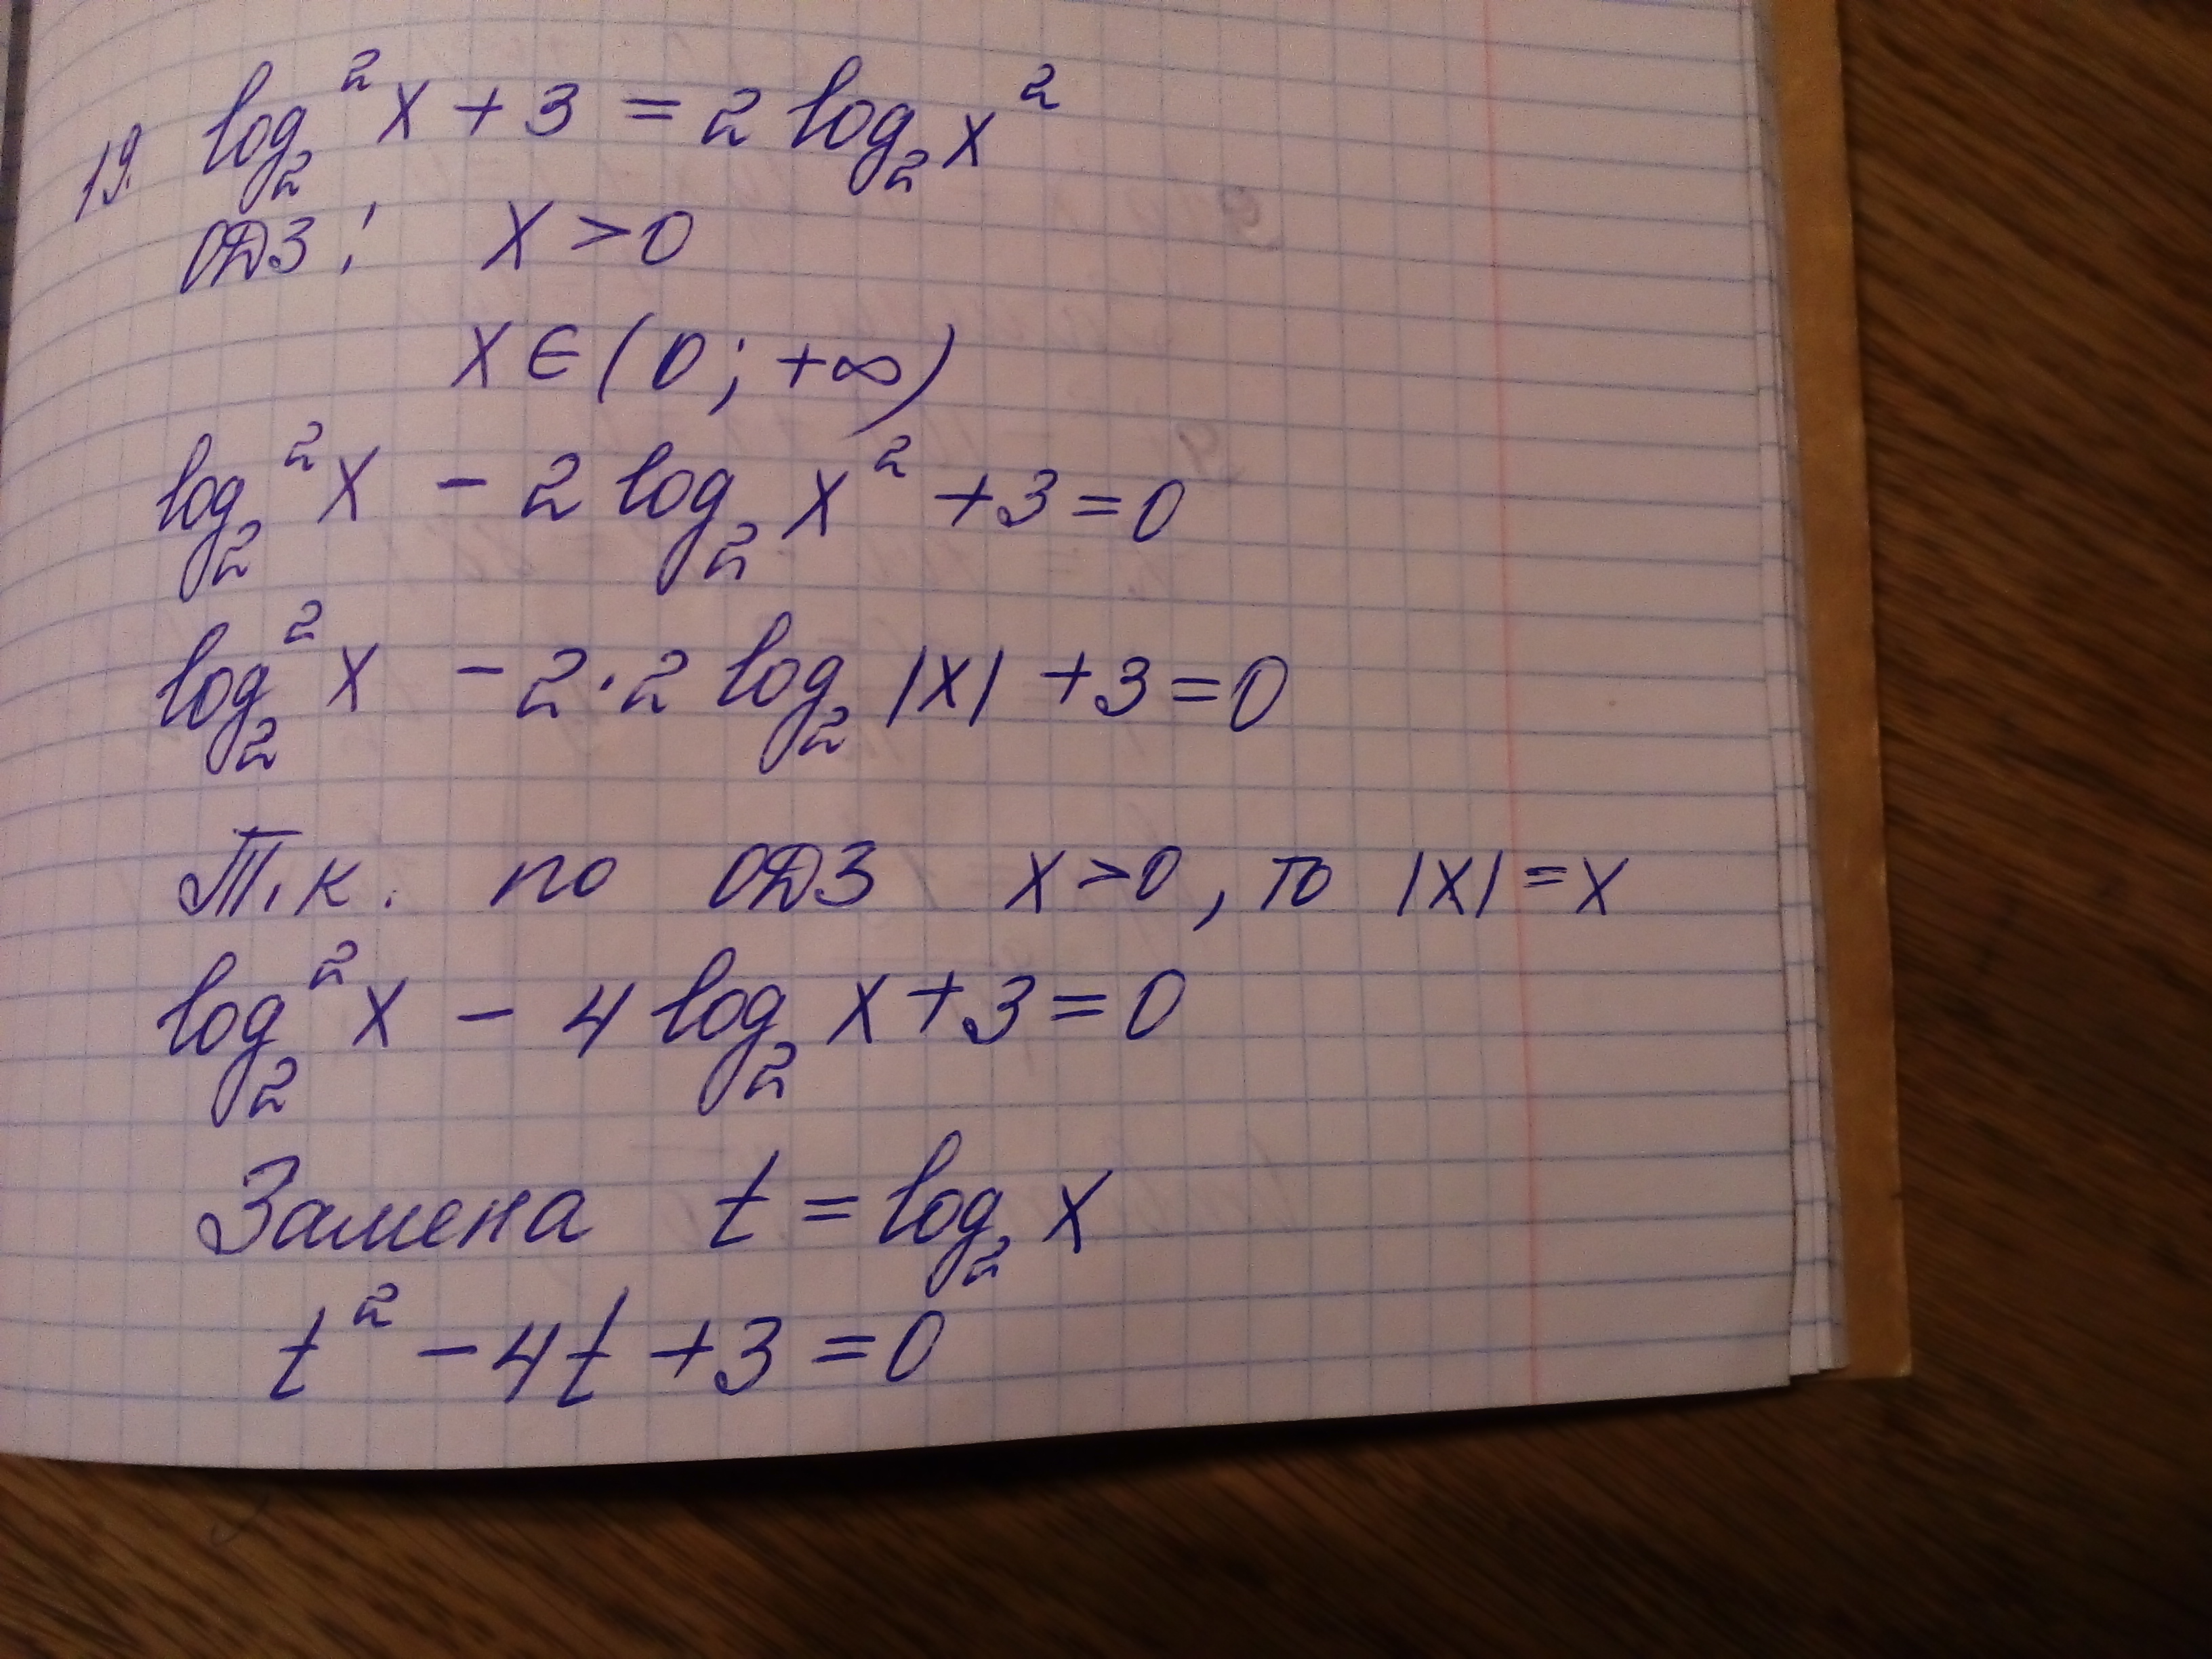 19. log₂²x + 3 = 2 log₂x²
ОДЗ: x > 0
x ∈ (0; +∞)
log₂²x - 2 log₂x² + 3 = 0
log₂²x - 2·2 log₂|x| + 3 = 0
Т.к. по ОДЗ x > 0, то |x| = x
log₂²x - 4 log₂x + 3 = 0
Замена t = log₂x
t² - 4t + 3 = 0